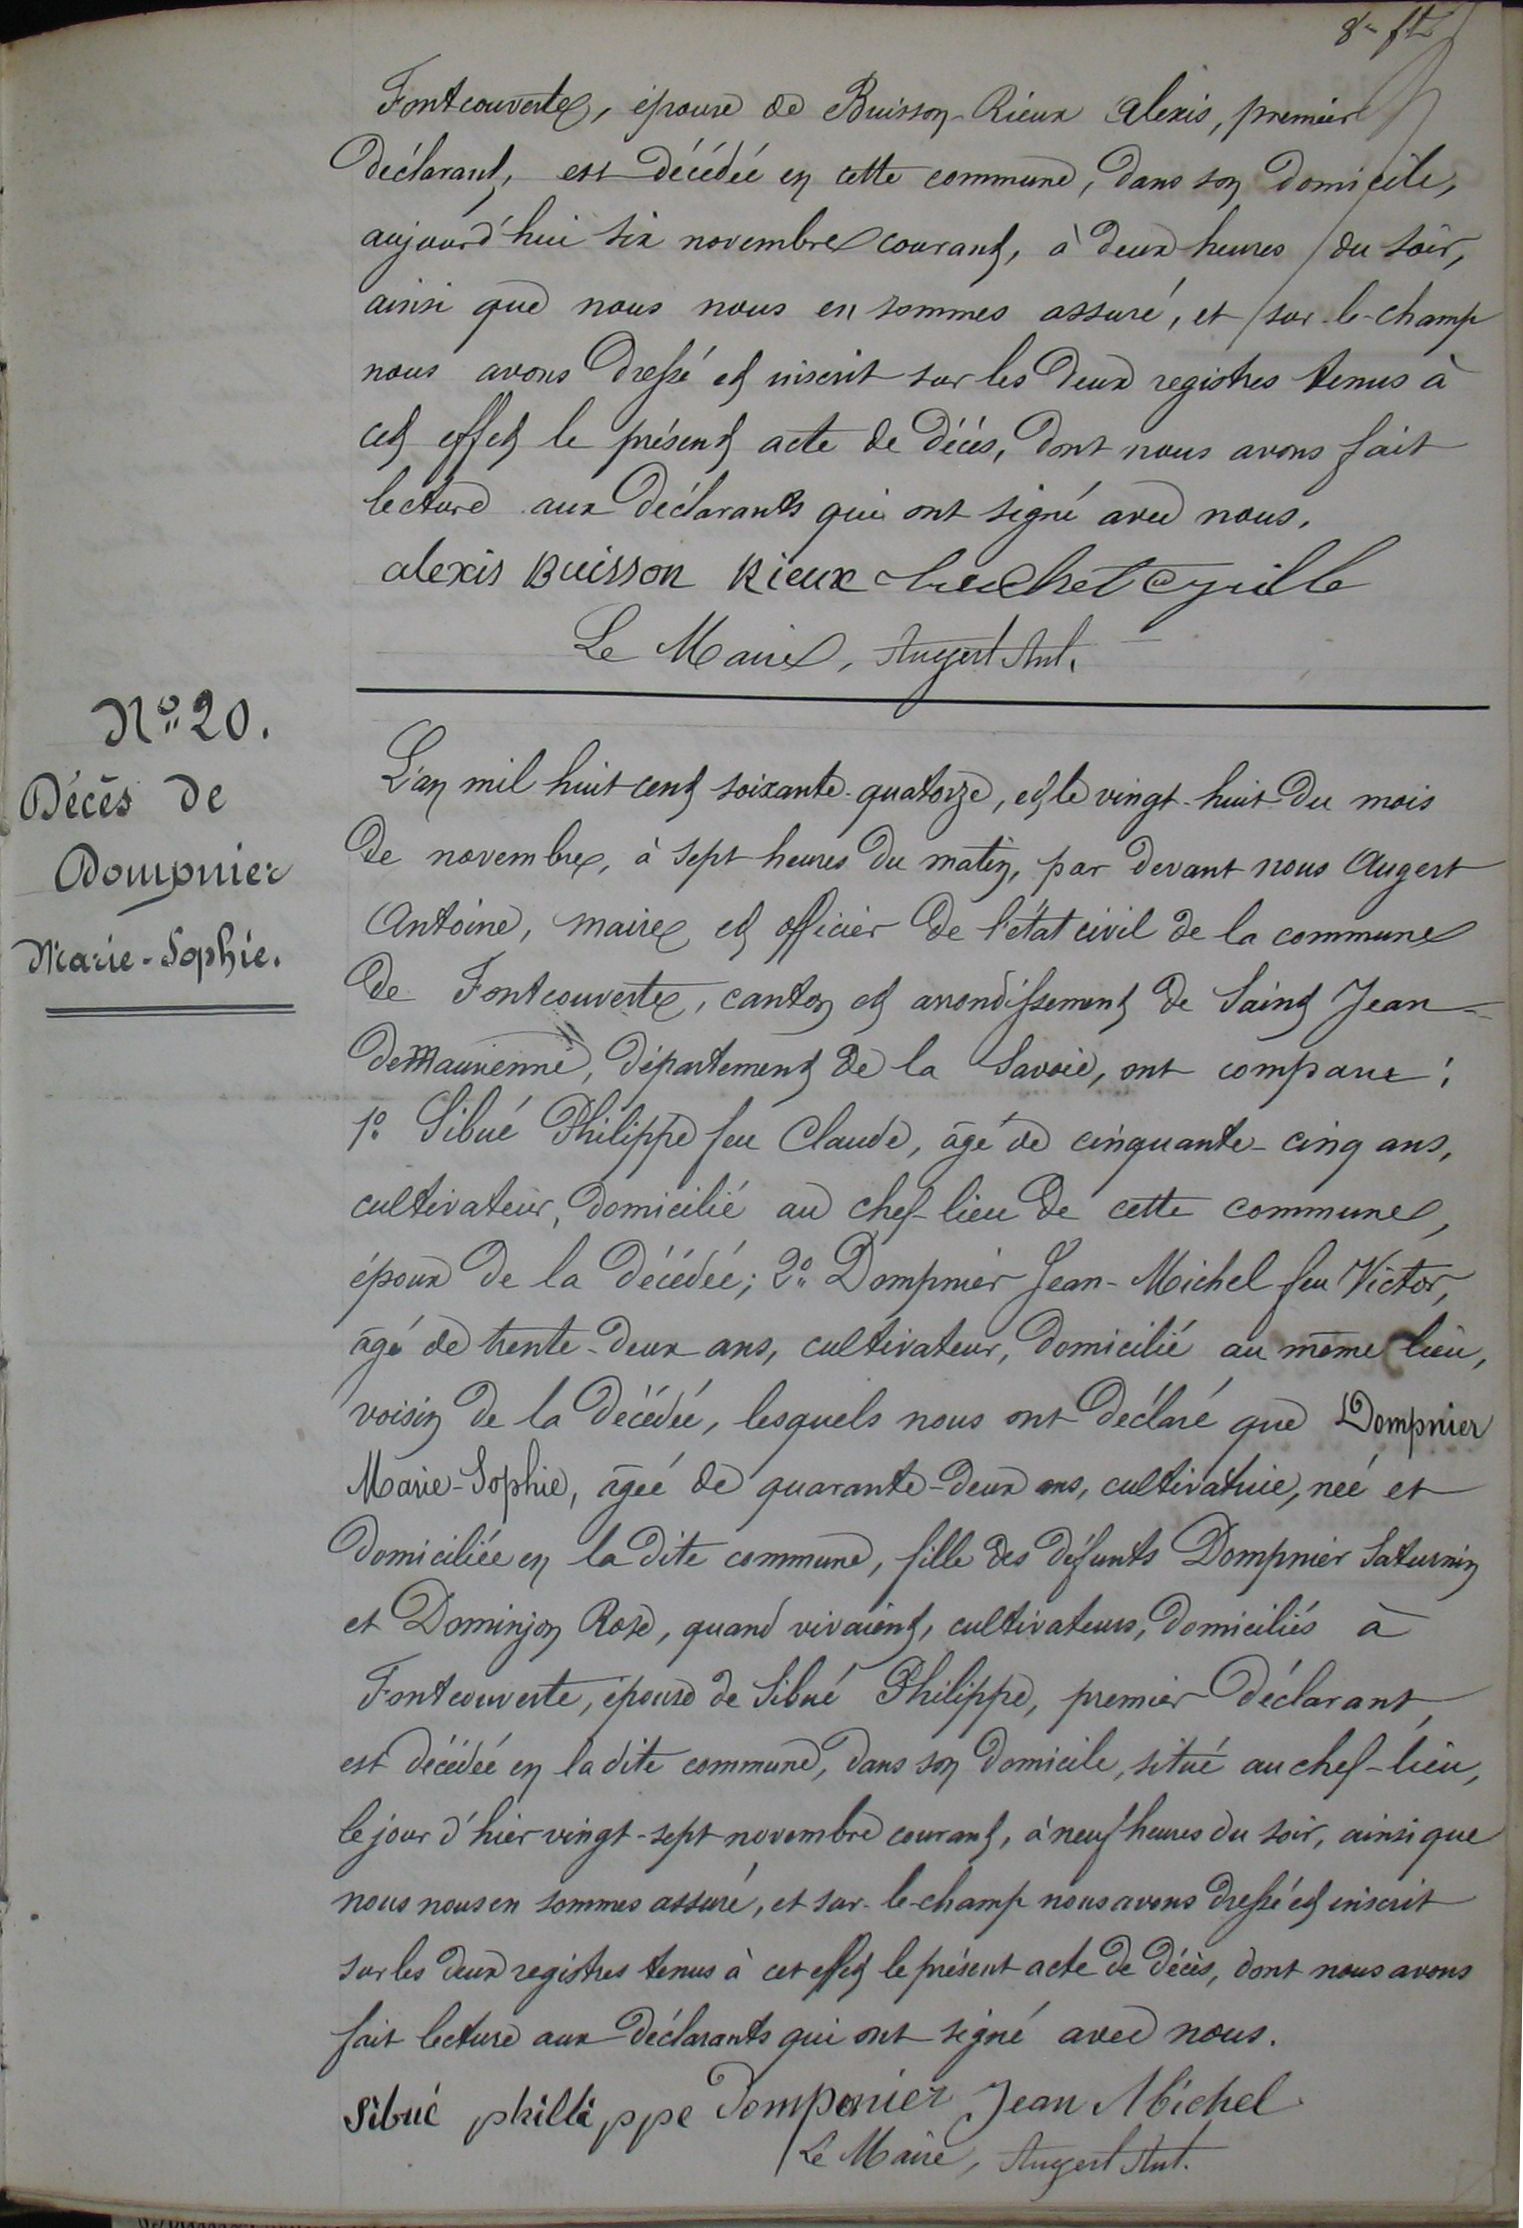 8e ft
Fontcouverte, épouse de Buisson-Rieux Alexis, premier
déclarant, est décédée en cette commune, dans son domicile,
aujourd'hui six novembre courant, à deux heures du soir,
ainsi que nous nous en sommes assuré, et sur-le-champ
nous avons dressé et inscrit sur les deux registres tenus à
cet effet le présent acte de décès, dont nous avons fait
lecture aux déclarants qui ont signé avec nous.
alexis Buisson Rieux truchet cyrille
Le Maire, Augert Ant.
No 20.
Décès de
Dompnier
Marie-Sophie.
L'an mil huit cent soixante-quatorze, et le vingt-huit du mois
de novembre, à sept heures du matin, par devant nous Augert
Antoine, maire et officier de l'état civil de la commune
de Fontcouverte, canton et arrondissement de Saint Jean-
de Maurienne, département de la Savoie, ont comparu :
1o Sibué Philippe feu Claude, âgé de cinquante-cinq ans,
cultivateur, domicilié au chef-lieu de cette commune,
époux de la décédée; 2o Dompnier Jean-Michel feu Victor,
âgé de trente-deux ans, cultivateur, domicilié au même lieu,
voisin de la décédée, lesquels nous ont déclaré que Dompnier
Marie-Sophie, âgée de quarante-deux ans, cultivatrice, née et
domiciliée en la dite commune, fille des défunts Dompnier Saturnin
et Dominjon Rose, quand vivaient, cultivateurs, domiciliés à
Fontcouverte, épouse de Sibué Philippe, premier déclarant,
est décédée en la dite commune, dans son domicile, situé au chef-lieu,
le jour d'hier vingt-sept novembre courant, à neuf heures du soir, ainsi que
nous nous en sommes assuré, et sur-le-champ nous avons dressé et inscrit
sur les deux registres tenus à cet effet le présent acte de décès, dont nous avons
fait lecture aux déclarants qui ont signé avec nous.
Sibué phillippe Domponier Jean Michel
Le Maire, Augert Ant.